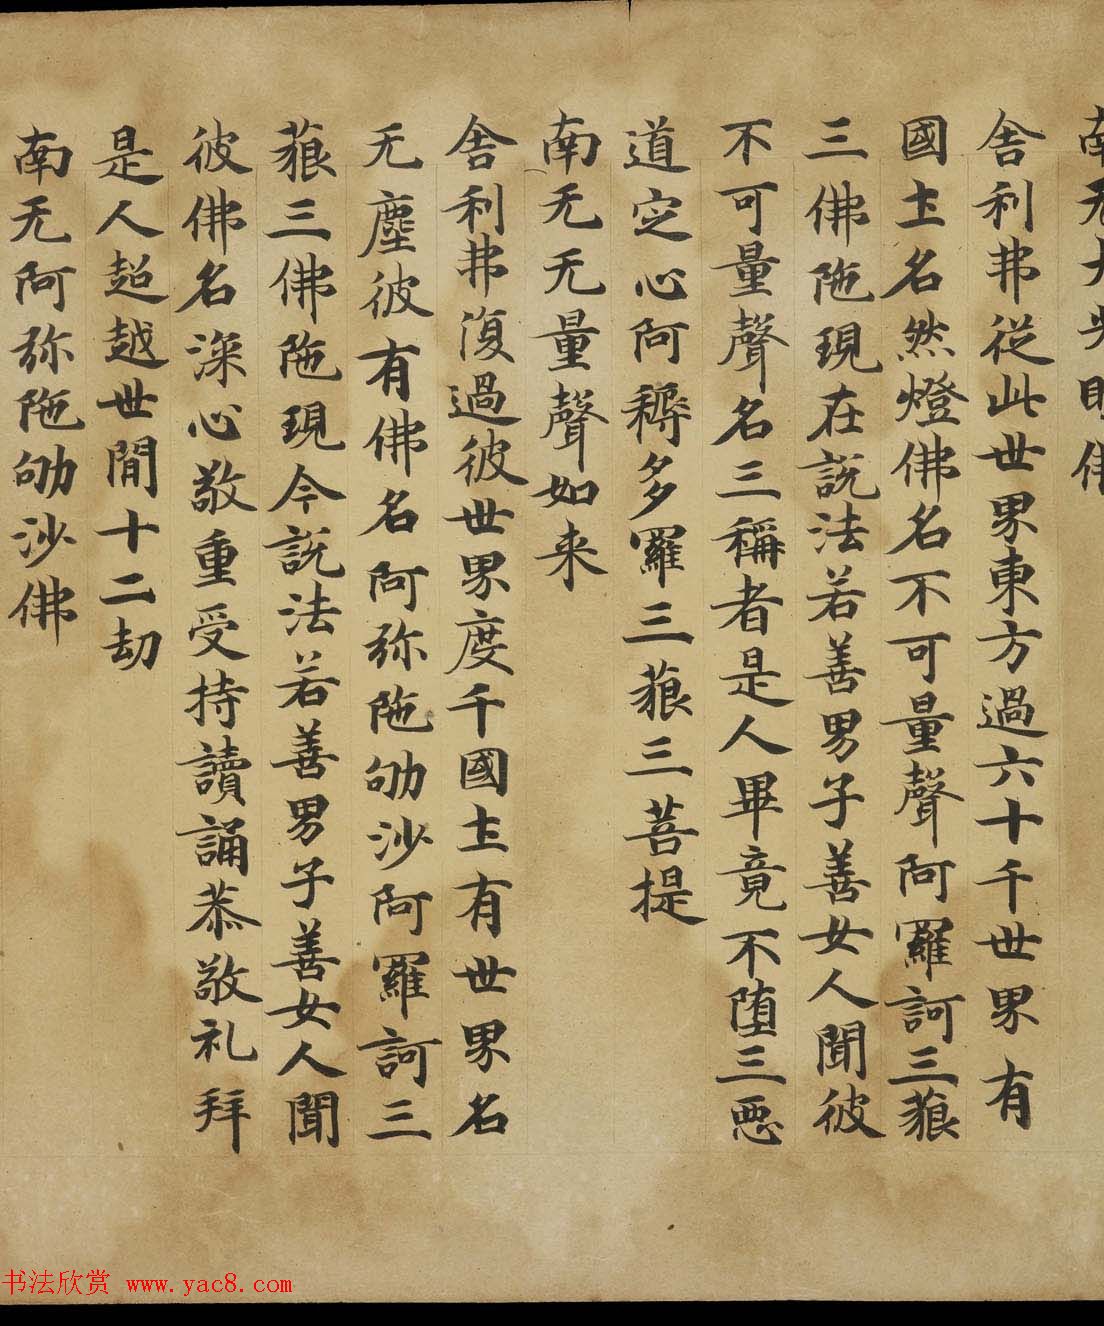 南无大光明佛
舍利弗従此世界東方過六十千世界有
國土名然燈佛名不可量聲阿羅訶三藐
三佛陁現在說法若善男子善女人聞彼
不可量聲名三稱者是人畢竟不墮三惡
道定心阿耨多羅三藐三菩提
南无无量聲如来
舍利弗復過彼世界度千國土有世界名
无塵彼有佛名阿弥陁劬沙阿羅訶三
藐三佛陁現今說法若善男子善女人聞
彼佛名深心敬重受持讀誦恭敬礼拜
是人超越世間十二劫
南无阿弥陁劬沙佛
书法欣赏 www.yac8.com